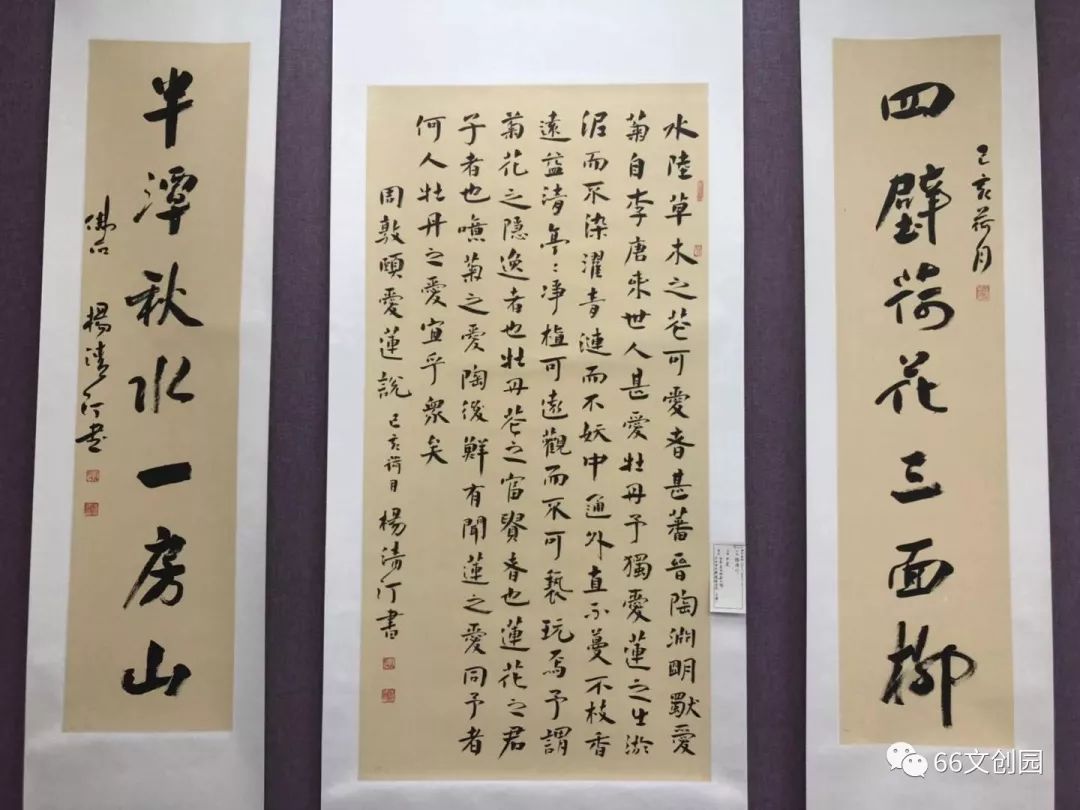 四壁荷花三面柳
己亥荷月
水陸草木之花可愛者甚蕃晉陶淵明獨愛
菊自李唐來世人甚愛牡丹予獨愛蓮之出淤
泥而不染濯青漣而不妖中通外直不蔓不枝香
遠益清亭〻淨植可遠觀而不可褻玩焉予謂
菊花之隱逸者也牡丹花之富貴者也蓮花之君
子者也噫菊之愛陶後鮮有聞蓮之愛同予者
何人牡丹之愛宜乎衆矣
周敦頤愛蓮說 己亥荷月 楊清汀書
半潭秋水一房山
楊清汀書
66文创园